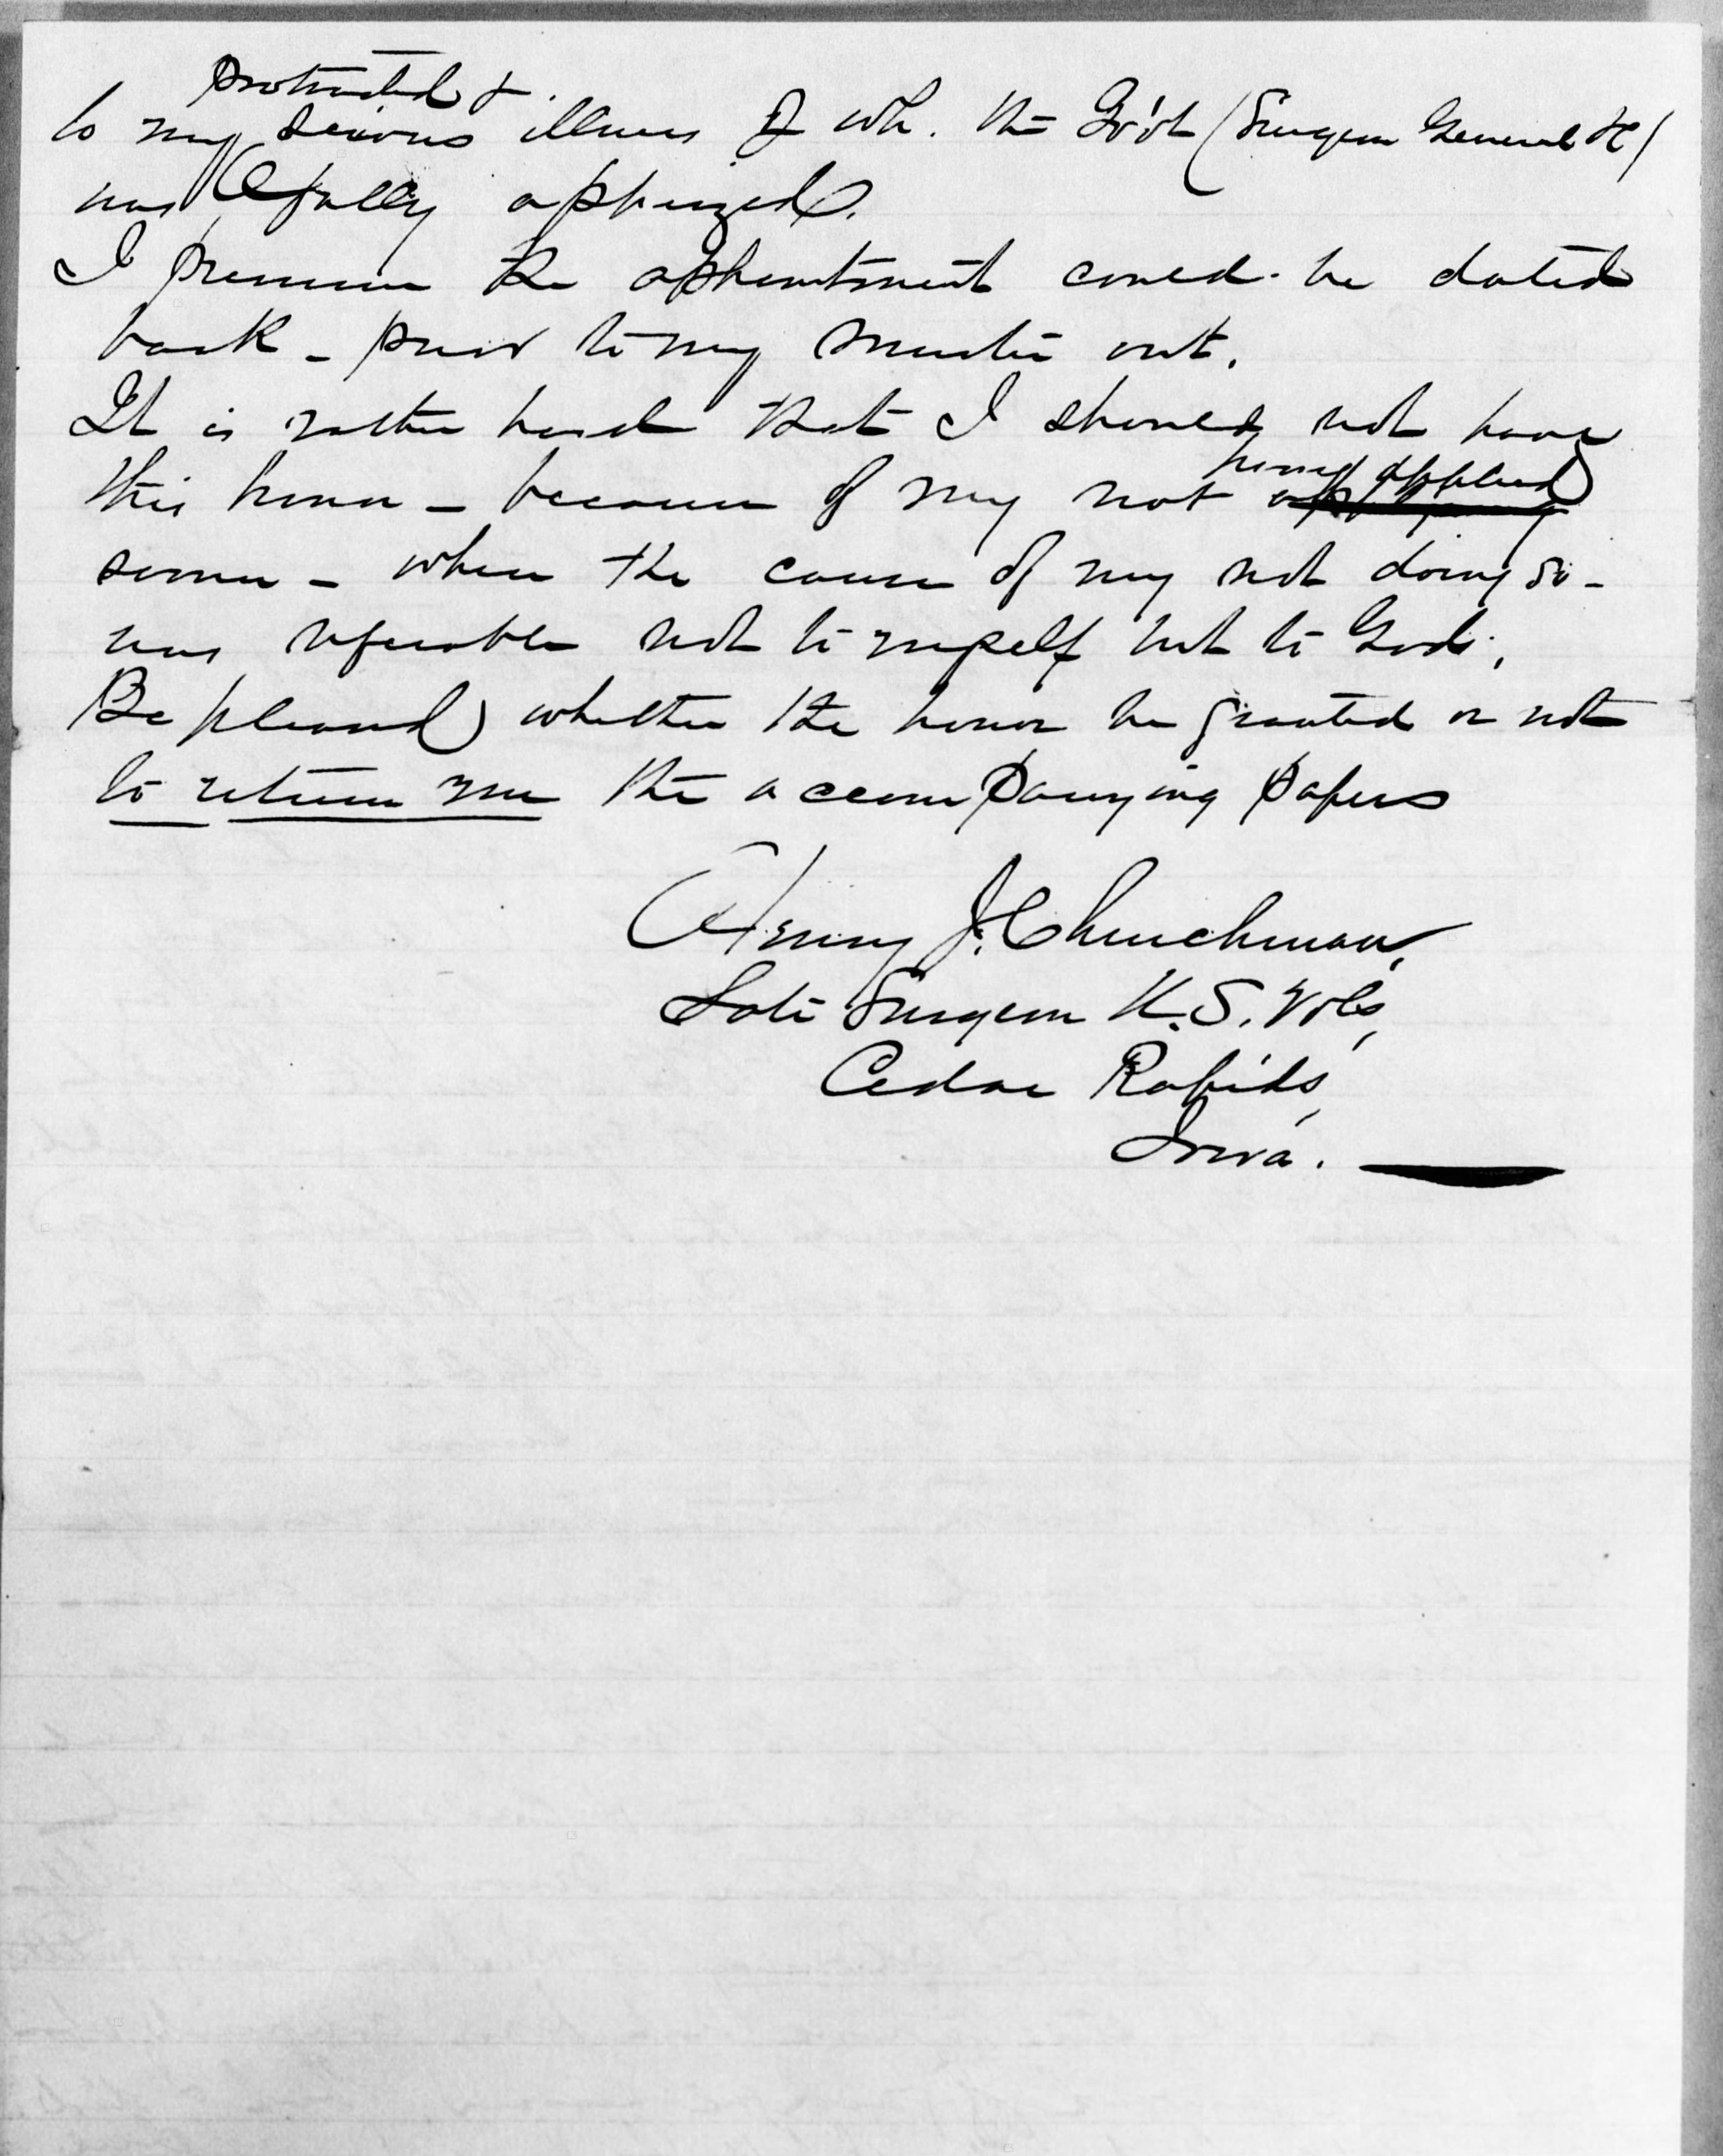 protracted &
to my serious illness of wh. the Gov't (Surgeon General &c)
was fully apprized.
I presume the appointment could be dated
back - prior to my muster out.
It is rather hard that I should not have
having applied
this honor - because of my not applying
sooner - when the cause of my not doing so -
was referable not to myself but to God.
Be pleased, whether the honor be granted or not
to return me the accompanying papers
Henry J. Churchman,
Late Surgeon U.S. Vols,
Cedar Rapids,
Iowa.